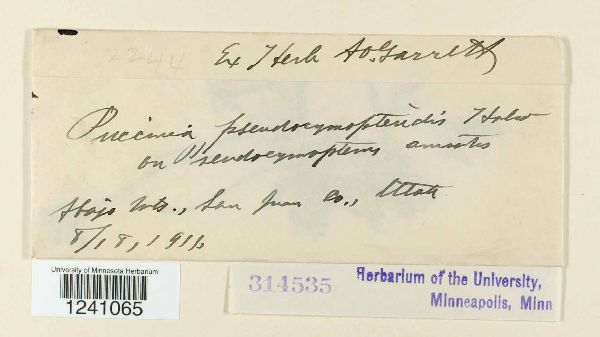 2244
Ex Herb AO. Garrett
Puccinia pseudocymopteridis Holw
on Pseudocymopterus anisatus
Abajo Mts., San Juan Co., Utah
8/18, 1911,
University of Minnesota Herbarium
1241065
314535
Herbarium of the University,
Minneapolis, Minn